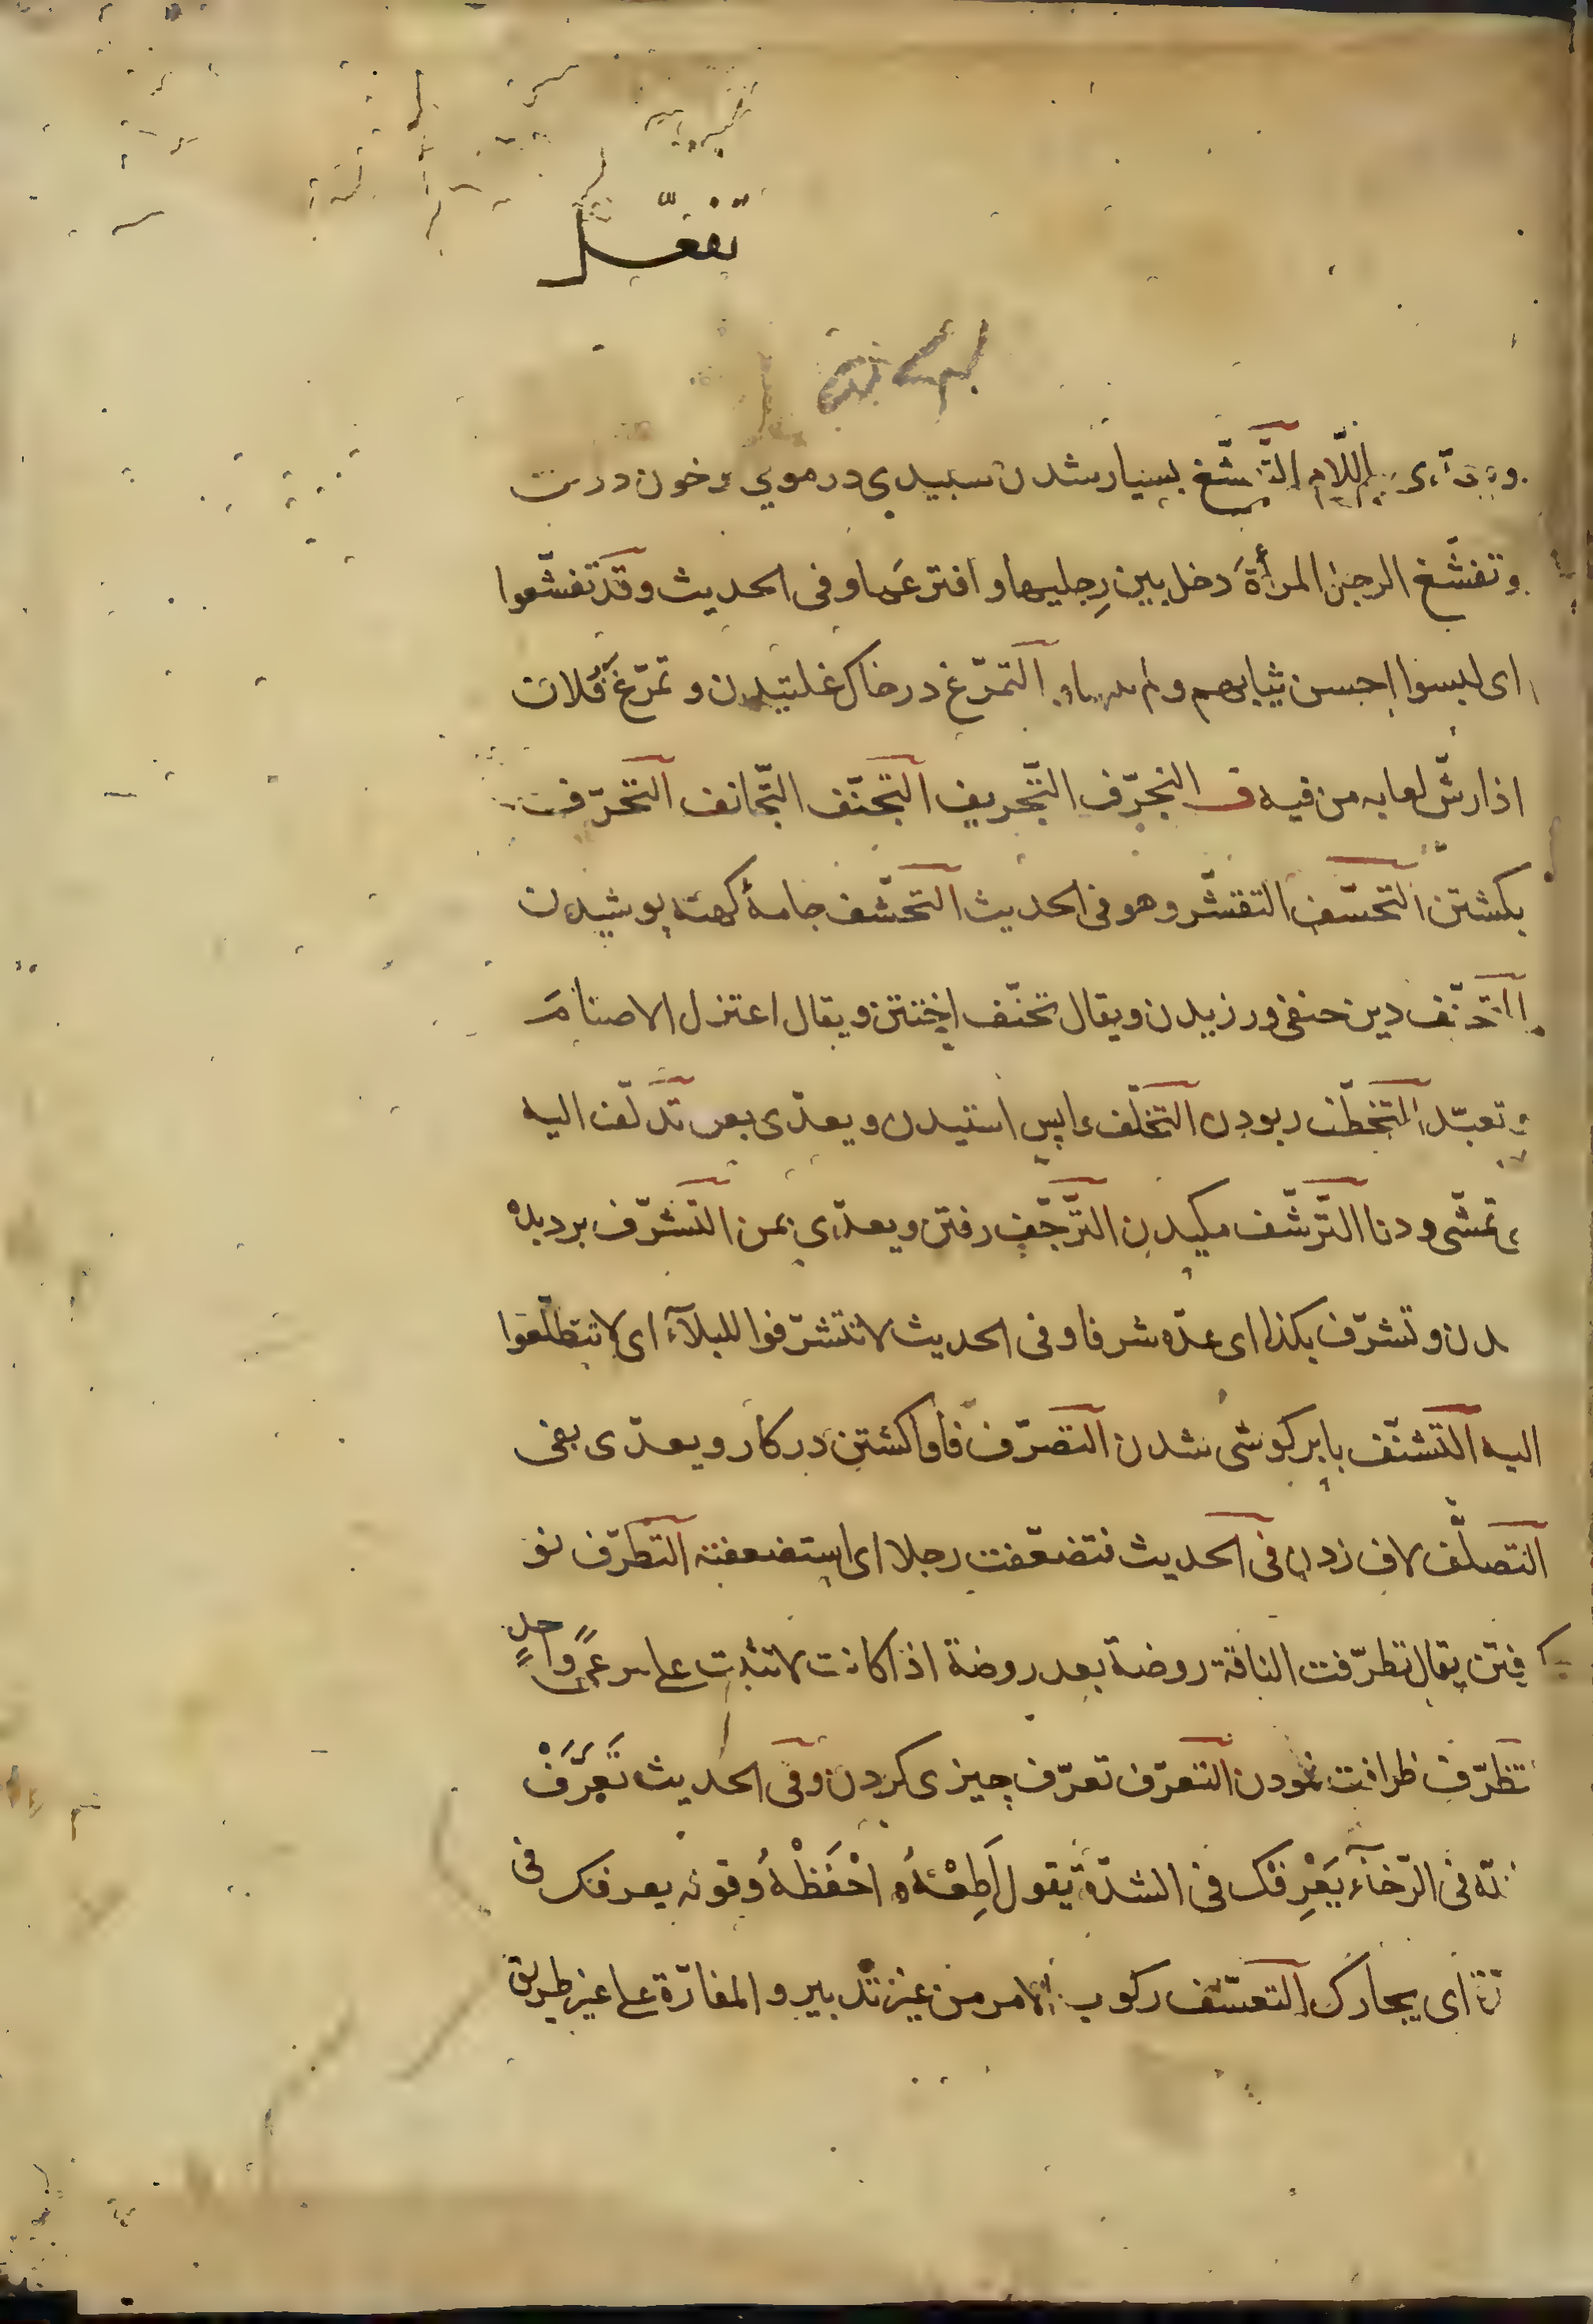 تفعّل
التَّفَشّغ بسيار شدن سبيدى در موى و خون در تن
و تفشّغ الرجل المرأةَ دخل بين رِجليها و افترعَها و فى الحديث و قَد تفشّغوا
اى لبسوا احسن ثيابهم و لم التمرّغ در خاك غلتيدن و تمرّغ فُلان
اذا رشّ لعابه من فيه ف التجرّف التّجريف التجنّف التّجانف التحرّف
بكشتن التحسّف التقشّر و هو فى الحديث التحشّف جامهٔ كهنه پوشيدن
التحنّف دين حنفى ورزيدن و يقال تحنّف اختتن و يقال اعتزل الاصنامَ
و تعبّد التخطّف ربودن التخلّف وا پس استيدن و يعدّى بعن تدلّف اليه
اى تمشّى و دنا الترشّف مكيدن الترجّف رفتن و يعدّى بمن التشرّف بر ديده
دن و تشرّف بكذا اى عدّه شرفا و فى الحديث لا تتشرّفوا للبلآء اى لا تتطلّعوا
اليه التشنّف با بركوشى شدن التصرّف فا وا كشتن در كار و يعدّى بفى
التصلّف لاف زدن فى الحديث فتضعّفت رجلا اى استضعفته التطرّف نو
يقال تطرّفت الناقة روضة بعد روضة اذا كانت لا تثبت على مرعًى واحدٍ
تظرّف ظرافت نمودن التعرّف تعرّف چيزى كردن و فى الحديث تَعَرَّفْ
فى الرّخآء يَعْرِفْك فى الشدّة يقول اَطِعْهُ و احْفَظْهُ و قوله يعرفك فى
اى يجازك التعسّف ركوب الامر من غير تدبير و المفازة على غير طريق